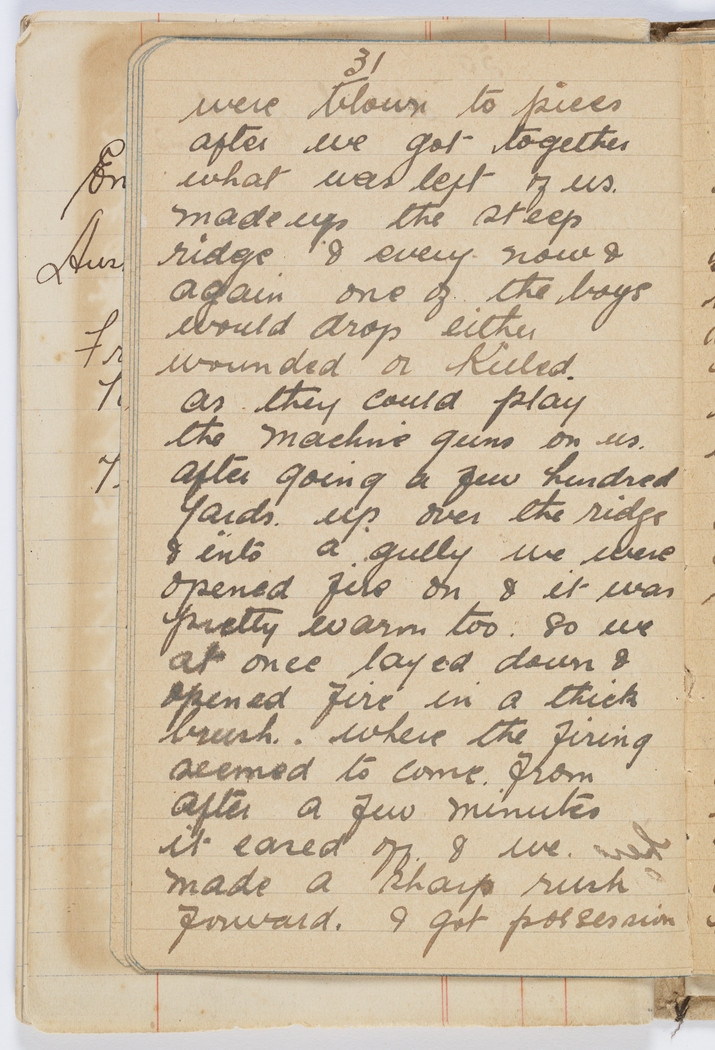 31
were blown to pices
after we got together
what was left of us.
made up the steep
ridge & every now &
again one of the boys
would drop either
wounded or Killed.
as they could play
the machine guns on us.
after going a few hundred
yards. up over the ridge
& into a gully we were
opened fire on & it was
pretty warm too. So we
at once layed down &
opened fire in a thick
brush.. where the firing
seemed to come from
after a few minutes
it eared off & we
made a sharp rush
forward. & got possession